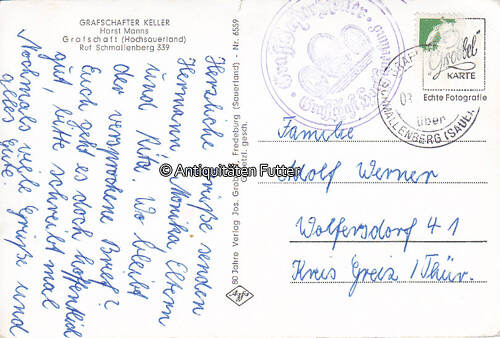 GRAFSCHAFTER KELLER
Horst Manns
Grafschaft (Hochsauerland)
Ruf Schmallenberg 339
Herzliche Grüße senden
Hermann, Monika, Eltern
und Rita. Wo bleibt
der versprochene Brief?
Euch geht es doch hoffentlich
gut, bitte schreibt mal
Nochmals viele Grüße und
alles Gute
80 Jahre Verlag Jos. Grobbel, Fredeburg (Sauerland) - Nr. 6559
Ges. gesch.
Agfa
Grafschafter Keller
Grobbel
KARTE
Echte Fotografie
über
SCHMALLENBERG (SAUERL)
Familie
Adolf Werner
Wolfersdorf 41
Kreis Greiz / Thür.
© Antiquitäten Futter